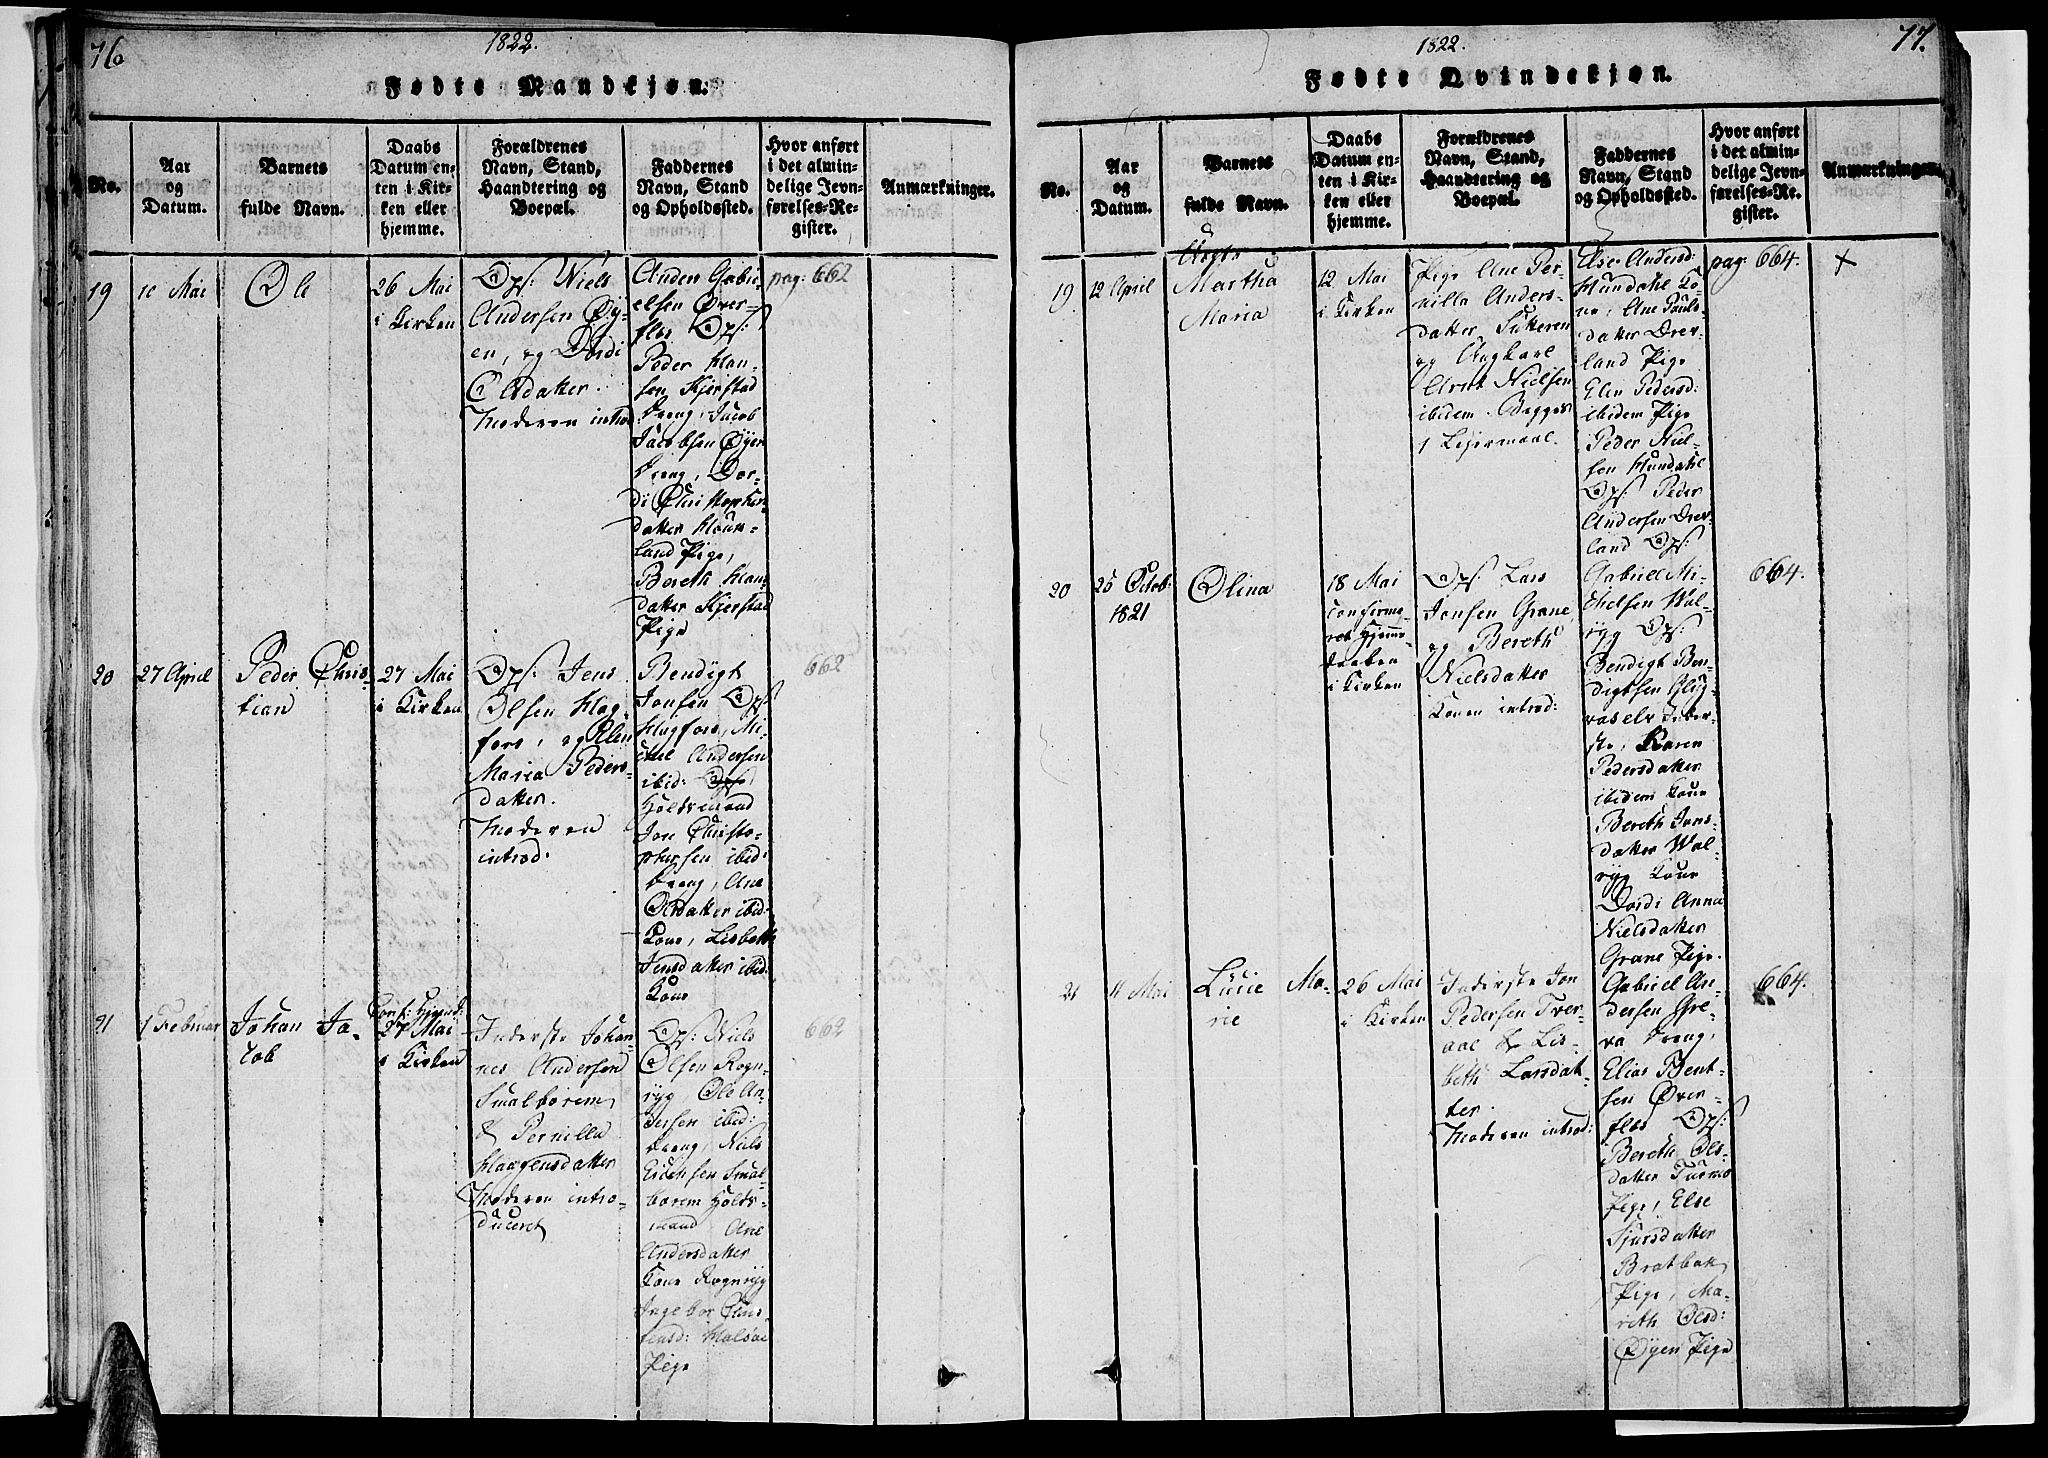 76
1822.
Fødte Mandkjøn.
No.
Aar
og
Datum.
Barnets
fulde Navn.
Daabs
Datum en-
ten i Kir-
ken eller
hjemme.
Forældrenes
Navn, Stand,
Haandtering og
Boepæl.
Faddernes
Navn, Stand
og Opholdssted.
Hvor anført
i det almin-
delige Jevn-
førelses-Re-
gister.
Anmærkninger.
19
10 Mai
Ole
26 Mai
i Kirken
Ops: Niels
Andersen Øy-
en, og Dordi
Olsdatter.
Moderen introd
Anders Gabri-
elsen Øver-
flos Ops:
Peder Han-
sen Kjerstad
Dreng, Jacob
Jacobsen Øyen
Dreng, Dor-
di Christopher-
datter Houm-
land Pige,
Bereth Han-
datter Kjerstad
Pige
pag: 662
20
27 April
Peder Chris-
tian
27 Mai
i Kirken
Ops: Jens
Olsen Hag-
fors, og Elen
Maria Peders-
datter.
Moderen
introd:
Bendigt
Jonsen Ops
Hagfors, Mi-
chel Andersen
ibid: Ops
Holdsmand
Jon Christo-
phersen ibid:
Dreng, Ane
Olsdatter ibid:
Kone, Lisbeth
Jensdatter ibid:
Kone
662
21
1 Februar
Johan Ja-
cob
Conf: Hjemd:
27 Mai
i Kirken
Inderste Johan-
nes Andersen
Smalborem
& Pernilla
Haagensdatter
Moderen intro-
duceret
Ops: Niels
Olsen Rogn-
ryg Ole An-
dersen ibid:
Dreng, Niels
Erichsen Smal-
borem Holds-
mand Ane
Andersdatter
Kone Rognryg
Ingebor Chris-
tensd: Halsøe
Pige
662
77.
1822.
Fødte Qvindekjøn.
No.
Aar
og
Datum.
Barnets
fulde Navn.
Daabs
Datum en-
ten i Kir-
ken eller
hjemme.
Forældrenes
Navn, Stand,
Haandtering og
Boepæl.
Faddernes
Navn, Stand
og Opholdssted.
Hvor anført
i det almin-
delige Jevn-
førelses-Re-
gister.
Anmærkninger.
19
12 April
Uegte
Martha
Maria
12 Mai
i Kirken
Pige Ane Per-
nilla Anders-
datter, Sutteren
og Ungkarl
Arnt Nielsen
ibidem. Begges
1 Lejermaal.
Else Andersd:
Hundahl Ko-
ne, Ane Pouls-
datter Drev-
land Pige
Elen Pedersd:
ibidem Pige
Peder Niel-
sen Hundahl
Ops: Peder
Andersen Drev-
land Ops:
pag: 664.
+
20
25 Octob:
1821
Olina
18 Mai
confirme-
ret Hjemme-
daaben
i Kirken
Ops: Lars
Jonsen Grane,
og Bereth
Nielsdatter
Konen introd:
Gabriel Mi-
chelsen Wal-
ryg Ops:
Bendigt Ben-
digtsen Glug-
vaselv Inder-
ste, Karen
Pedersdatter
ibidem Kone
Bereth Jons-
datter Wal-
ryg Kone
Dordi Anna
Nielsdatter
Grane Pige.
664.
21
11 Mai
Lucie Ma-
rie
26 Mai
i Kirken
Inderste Jon
Pedersen Tver-
aae & Lis-
beth Larsdat-
ter.
Moderen introd:
Gabriel An-
dersen Gre-
va Dreng,
Elias Bent-
sen Øver-
flos Ops:
Bereth Ols-
datter Turmo
Pige, Else
Sjursdatter
Bratbak
Pige, Ma-
reth Olsd:
Øyen Pige
664.